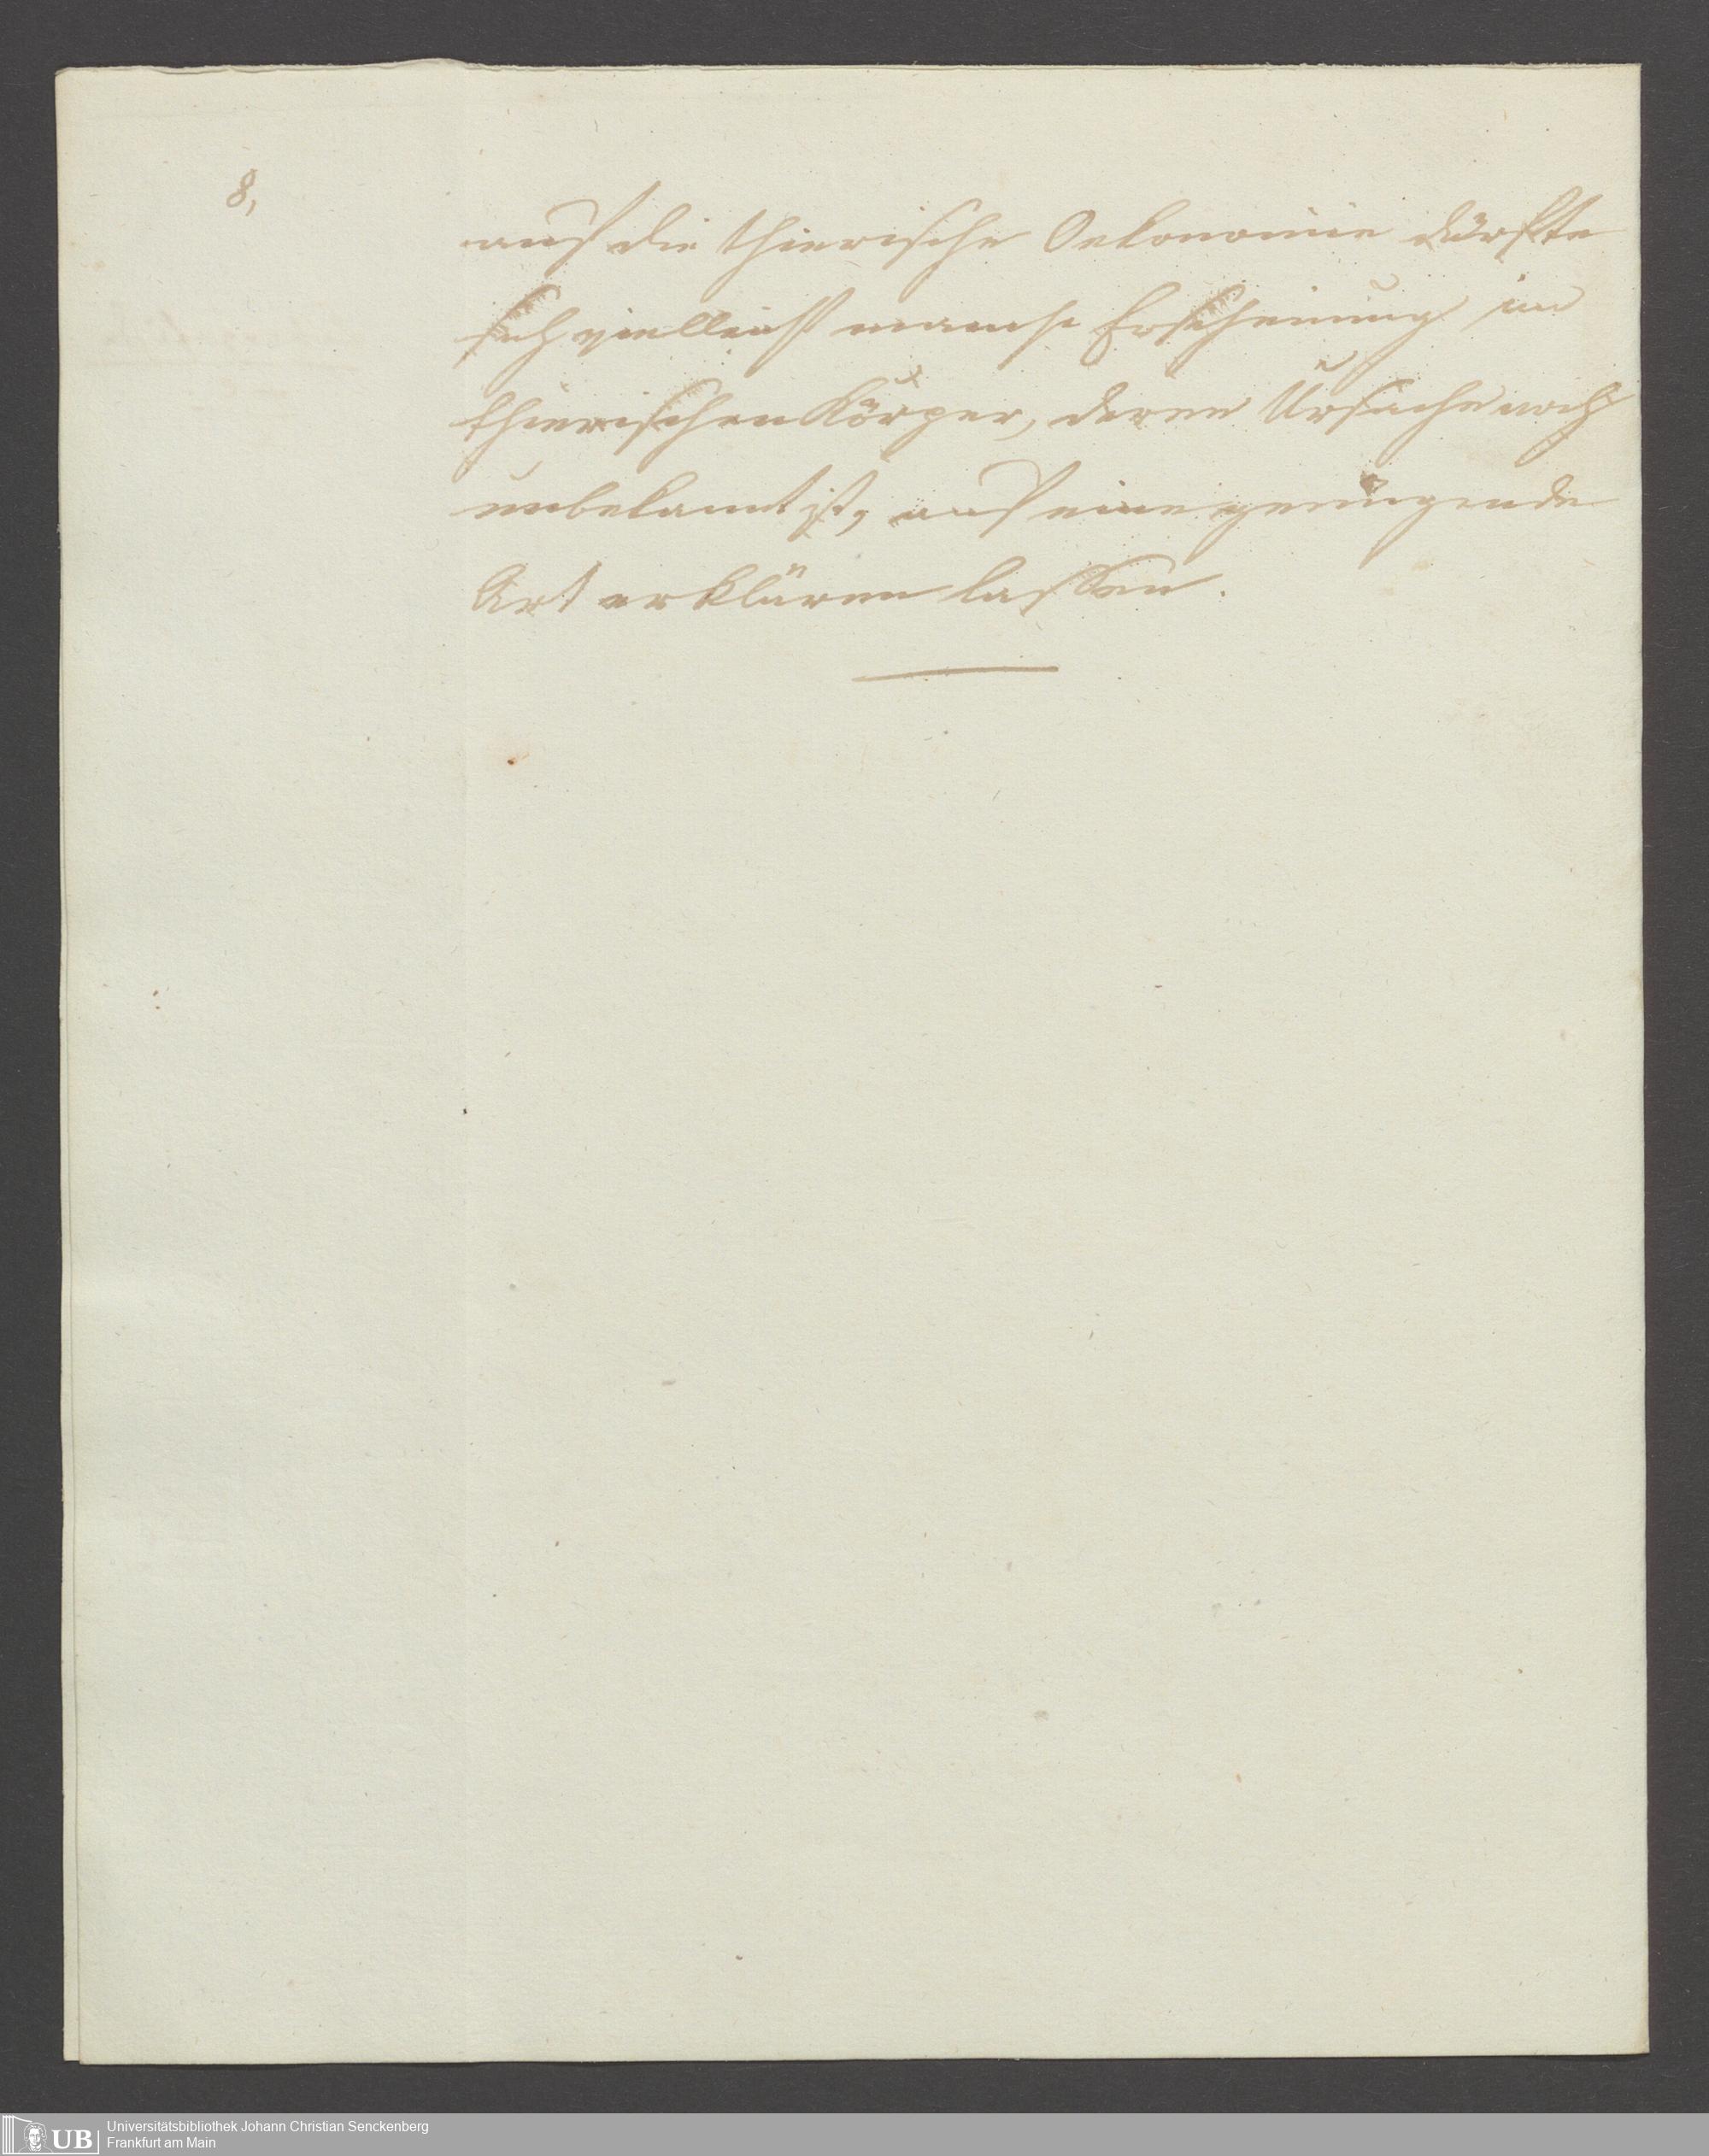 8,
auf die thierische Oekonomie dürfte
sich vielleicht manche Erscheinung im
thierischen Körper, deren Ursache noch
unbekannt ist, auf eine genügende
Art erklären lassen.
UB Universitätsbibliothek Johann Christian Senckenberg
Frankfurt am Main